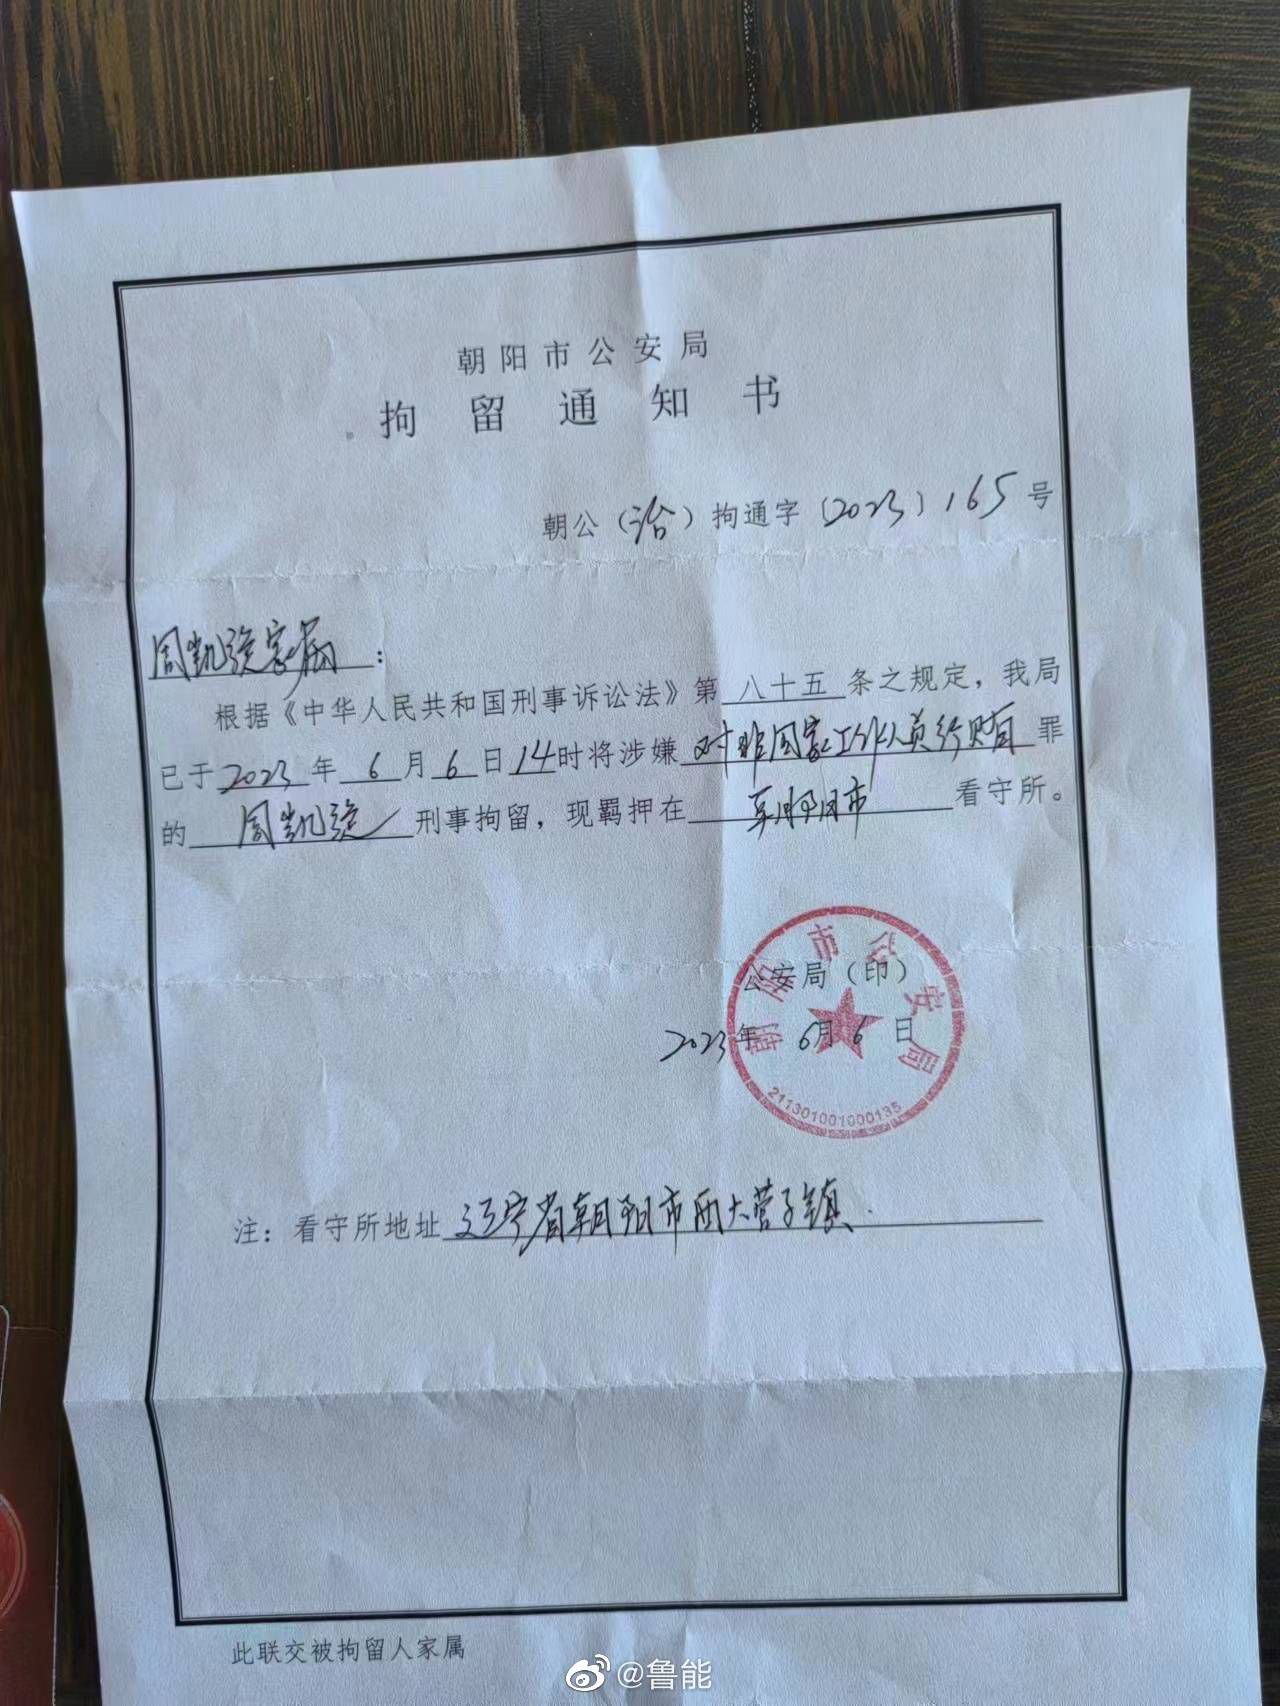 朝阳市公安局
拘留通知书
朝公（治）拘通字〔2023〕165号
周凯旋家属：
根据《中华人民共和国刑事诉讼法》第八十五条之规定，我局
已于2023年6月6日14时将涉嫌对非国家工作人员行贿罪
的周凯旋刑事拘留，现羁押在朝阳市看守所。
朝阳市公安局
公安局（印）
2023年6月6日
211301001000135
注：看守所地址辽宁省朝阳市西大营子镇
此联交被拘留人家属
@鲁能